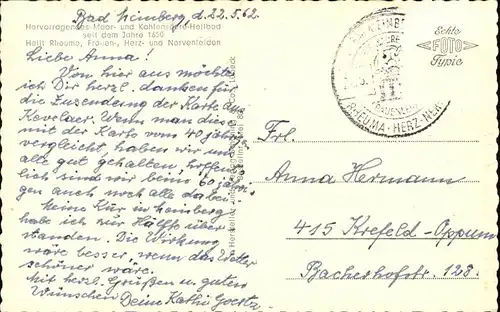 Bad Nümberg, d. 22.5.62.
Hervorragendes Moor- und Kohlensäure-Heilbad
seit dem Jahre 1650
Heilt Rheuma, Frauen-, Herz- und Nervenleiden
Liebe Anna!
Von hier aus möchte
ich Dir herzl. danken für
die Zusendung der Karte aus
Kevelaer. Wenn man dies
mit der Karte vom 40 jährg.
vergleicht, haben wir uns
alle gut gehalten, hoffen-
lich sind wir beim 60 jähri-
gen auch noch alle dabei.
Meine Kur in
habe ich zur Hälfte über
standen. Die Wirkung
wäre besser, wenn das Wetter
schöner wäre.
Mit herzl. Grüßen u. guten
Wünschen Deine Kathi
Echte
FOTO
Typie
RHEUMA·HERZ-NERV
Frl.
Anna Hermann
415 Krefeld-Oppum
Bacherhofstr. 123.